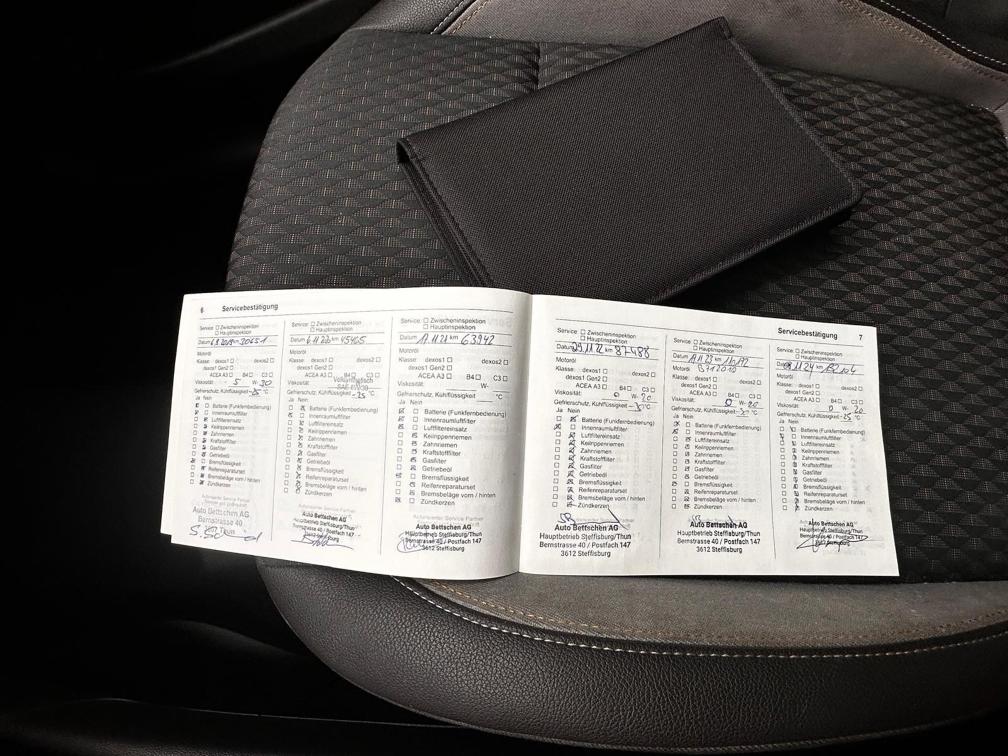 6 Servicebestätigung
Service: ☐ Zwischeninspektion
☐ Hauptinspektion
Datum km 20651
Motoröl
Klasse: dexos1 ☐ dexos2 ☐
dexos1 Gen2 ☐
ACEA A3 ☐ B4 ☐ C3 ☐
Viskosität: 5 W- 30
Gefrierschutz, Kühlflüssigkeit °C
Ja Nein
Batterie (Funkfernbedienung)
Innenraumluftfilter
Luftfiltereinsatz
Keilrippenriemen
Zahnriemen
Kraftstofffilter
Gasfilter
Getriebeöl
Bremsflüssigkeit
Reifenreparaturset
Bremsbeläge vorn / hinten
Zündkerzen
Bernstrasse 40
Thun
Service: ☐ Zwischeninspektion
☐ Hauptinspektion
Datum km 45465
Motoröl
Klasse: dexos1 ☐ dexos2 ☐
dexos1 Gen2 ☐
ACEA A3 ☐ B4 ☐ C3 ☐
Viskosität: Vollsynthetisch
Gefrierschutz, Kühlflüssigkeit -25 °C
Ja Nein
Batterie (Funkfernbedienung)
Innenraumluftfilter
Luftfiltereinsatz
Keilrippenriemen
Zahnriemen
Kraftstofffilter
Gasfilter
Getriebeöl
Bremsflüssigkeit
Reifenreparaturset
Bremsbeläge vorn / hinten
Zündkerzen
Auto Bettschen AG
Hauptbetrieb Steffisburg/Thun
Bernstrasse 40 / Postfach 147
Service: ☐ Zwischeninspektion
☐ Hauptinspektion
Datum km 63942
Motoröl
Klasse: dexos1 ☐ dexos2 ☐
dexos1 Gen2 ☐
ACEA A3 ☐ B4 ☐ C3 ☐
Viskosität: W-
Gefrierschutz, Kühlflüssigkeit °C
Ja Nein
Batterie (Funkfernbedienung)
Innenraumluftfilter
Luftfiltereinsatz
Keilrippenriemen
Zahnriemen
Kraftstofffilter
Gasfilter
Getriebeöl
Bremsflüssigkeit
Reifenreparaturset
Bremsbeläge vorn / hinten
Zündkerzen
Autorisierter Service Partner
Auto Bettschen AG
Hauptbetrieb Steffisburg/Thun
Bernstrasse 40 / Postfach 147
3612 Steffisburg
Servicebestätigung 7
Service: ☐ Zwischeninspektion
☐ Hauptinspektion
Datum 29.11.22 km 87488
Motoröl
Klasse: dexos1 ☐ dexos2 ☐
dexos1 Gen2 ☐
ACEA A3 ☐ B4 ☐ C3 ☐
Viskosität: 0 W- 20
Gefrierschutz, Kühlflüssigkeit °C
Ja Nein
Batterie (Funkfernbedienung)
Innenraumluftfilter
Luftfiltereinsatz
Keilrippenriemen
Zahnriemen
Kraftstofffilter
Gasfilter
Getriebeöl
Bremsflüssigkeit
Reifenreparaturset
Bremsbeläge vorn / hinten
Zündkerzen
Auto Bettschen AG
Hauptbetrieb Steffisburg/Thun
Bernstrasse 40 / Postfach 147
3612 Steffisburg
Service: ☐ Zwischeninspektion
☐ Hauptinspektion
Datum km
Motoröl
Klasse: dexos1 ☐ dexos2 ☐
dexos1 Gen2 ☐
ACEA A3 ☐ B4 ☐ C3 ☐
Viskosität: 0 W- 20
Gefrierschutz, Kühlflüssigkeit °C
Ja Nein
Batterie (Funkfernbedienung)
Innenraumluftfilter
Luftfiltereinsatz
Keilrippenriemen
Zahnriemen
Kraftstofffilter
Gasfilter
Getriebeöl
Bremsflüssigkeit
Reifenreparaturset
Bremsbeläge vorn / hinten
Zündkerzen
Auto Bettschen AG
Hauptbetrieb Steffisburg/Thun
Bernstrasse 40 / Postfach 147
3612 Steffisburg
Service: ☐ Zwischeninspektion
☐ Hauptinspektion
Datum km
Motoröl
Klasse: dexos1 ☐ dexos2 ☐
dexos1 Gen2 ☐
ACEA A3 ☐ B4 ☐ C3 ☐
Viskosität: 0 W- 20
Gefrierschutz, Kühlflüssigkeit °C
Ja Nein
Batterie (Funkfernbedienung)
Innenraumluftfilter
Luftfiltereinsatz
Keilrippenriemen
Zahnriemen
Kraftstofffilter
Gasfilter
Getriebeöl
Bremsflüssigkeit
Reifenreparaturset
Bremsbeläge vorn / hinten
Zündkerzen
Auto Bettschen AG
Hauptbetrieb Steffisburg/Thun
Bernstrasse 40 / Postfach 147